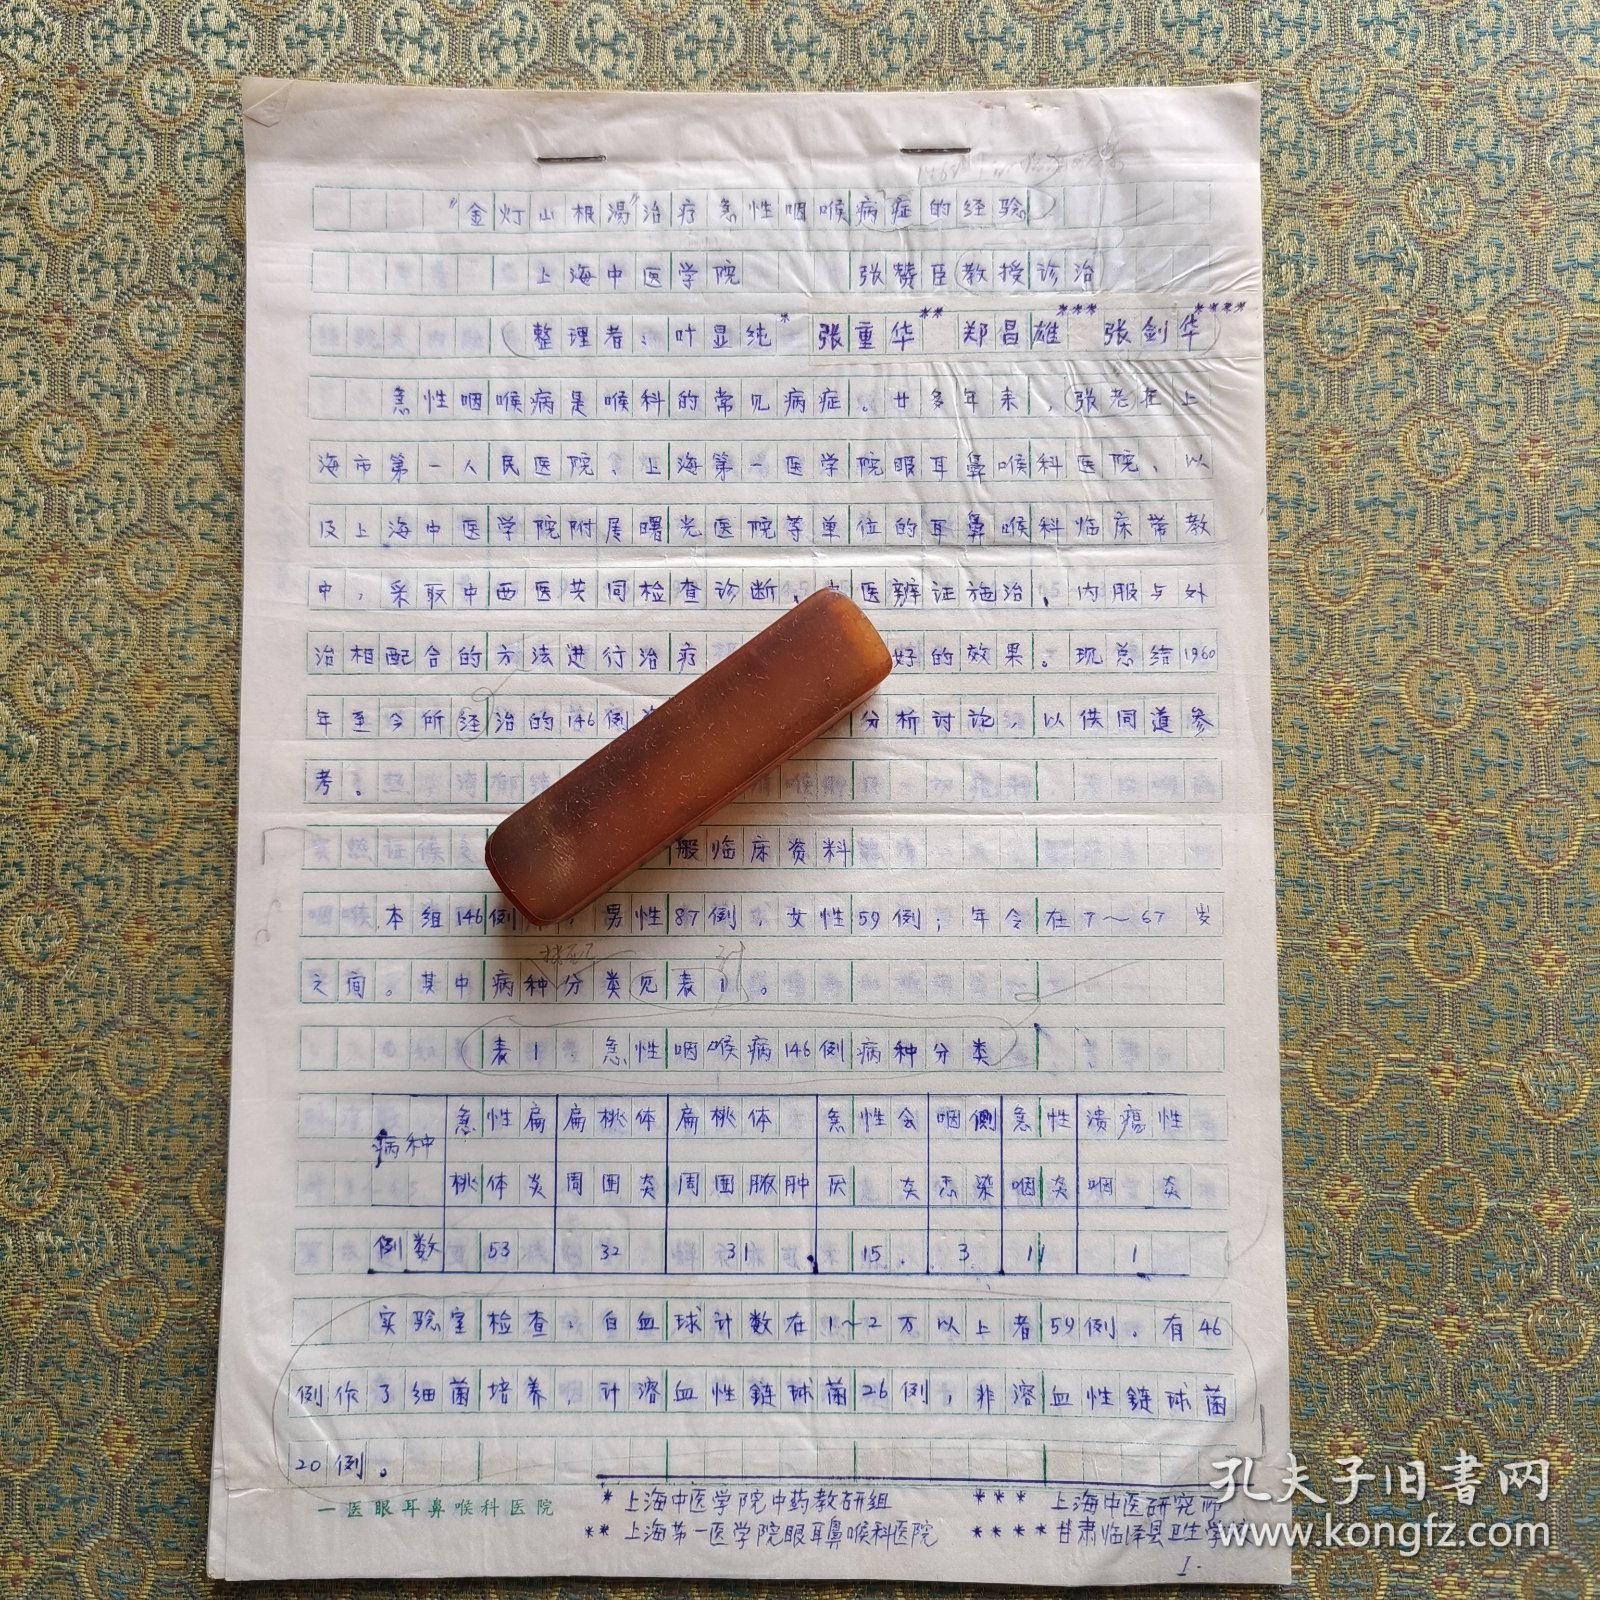 “金灯山根湯”治疗急性咽喉病症的经验
上海中医学院 张赞臣教授诊治
整理者：叶显纯* 张重华** 郑昌雄*** 张剑华****
急性咽喉病是喉科的常见病症。廿多年来，张老在上
海市第一人民医院、上海第一医学院眼耳鼻喉科医院、以
及上海中医学院附属曙光医院等单位的耳鼻喉科临床带教
中，采取中西医共同检查诊断、医辨证施治、内服与外
治相配合的方法进行治疗 好的效果。现总结1960
年至今所经治的146例 分析讨论，以供同道参
考。
般临床资料
本组146例 ，男性87例，女性59例；年令在7～67岁
之间。其中病种分类见表1。
表1 急性咽喉病146例病种分类
病种 急性扁桃体炎 扁桃体周围炎 扁桃体周围脓肿 急性会厌炎 咽侧感染 急性咽炎 溃疡性咽炎
例数 53 32 31 15 3 11 1
实验室检查：白血球计数在1～2万以上者59例。有46
例作了细菌培养，计溶血性鏈球菌26例，非溶血性鏈球菌
20例。
一医眼耳鼻喉科医院
* 上海中医学院中药教研组 *** 上海中医研究所
** 上海第一医学院眼耳鼻喉科医院 **** 甘肃临泽县卫生学
1.
孔夫子旧書网
www.kongfz.com